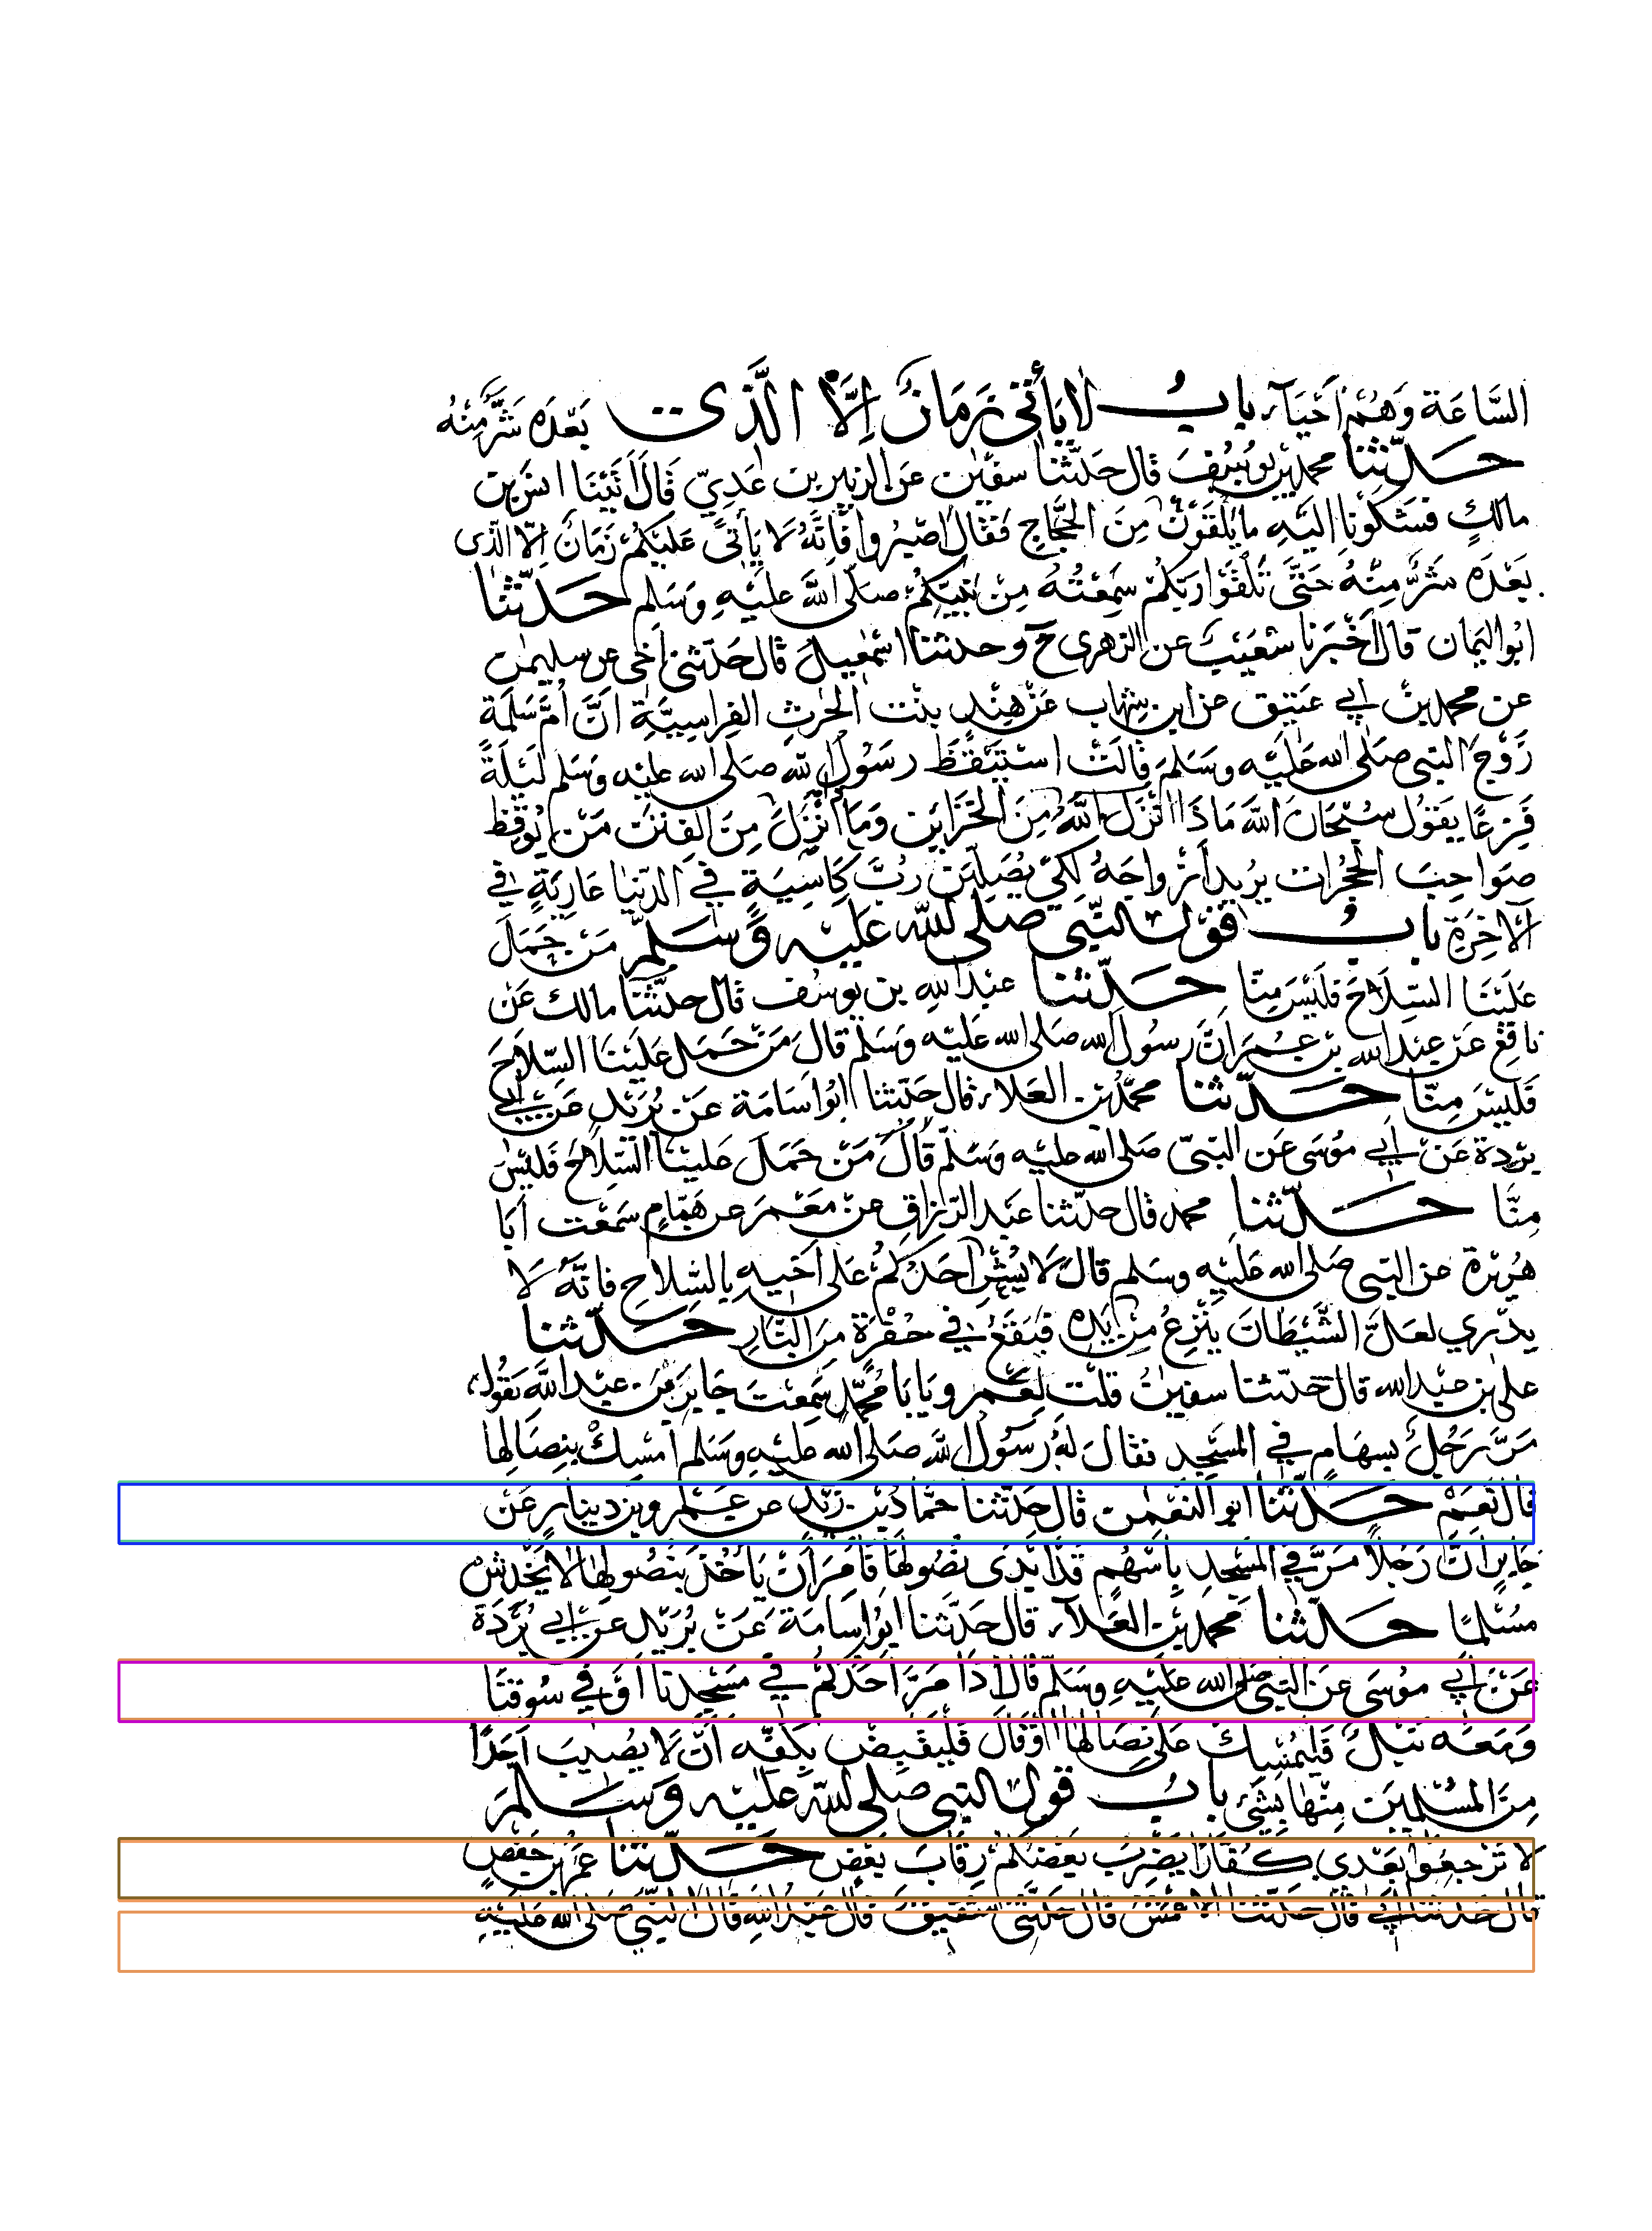 السَّاعَة وَهُمْ اَحْيَآء بابُ لا يَأتى زَمَانٌ اِلَّا الَّذى بَعْدَه شَرٌّ مِنْهُ
حَدّثنا محمد بن يوسُفَ قال حَدَّثَنا سفيٰن عَن الزبير بن عَدِيّ قَالَ اَتَيْنَا انس بن
مالكٍ فشكَونا اليَهِ ما يَلْقَوْنَ مِنَ الحَجَّاجِ فَقَالَ اصْبِرُوا فَاِنَّهُ لَا يَأتى عَلَيكُمْ زَمَانٌ اِلّا الّذى
بَعْدَه شَرٌّ مِنْهُ حَتَّى تَلْقَوْا رَبّكُمْ سَمِعْتُهُ مِنْ نَبِيّكُمْ صَلّى اللهَّ عَليْهِ وَسَلم حَدّثنا
ابُو اليَمان قالَ اَخْبَرَنا شُعَيْبٌ عن الزهرى ح وحدثنا اسْمٰعِيلُ قال حَدّثنى اَخى عن سليمٰن
عن محمد بن اَبي عَتيق عن ابن شِهَاب عَنْ هِنْدٍ بنْت الحٰرثِ الفِراسِيَّةِ انَّ اُمَّ سَلَمَة
زَوْجَ النبى صَلى الله عَلَيْهِ وسَلمَ قالَتْ اسْتَيْقَظَ رسَوُل لله صَلى الله عليْه وَسَلم لَيْلَةً
فَزِعًا يَقوُل سُبْحَانَ اللهَ مَاذَا اَنْزَلَ اللهُ مِنَ الخزَاينِ وَمَا اُنْزِلَ مِنَ الفِتَنِ مَنْ يُوقِظ
صَوَاحِبَ الحُجُرات يُريد اَزْواجَهُ لكَى يُصَلّيْنَ رُبَّ كاَسِيَةٍ في الدّنيا عَارِيَةٍ فِي
الآخِرَةِ بابُ قوْل النّبَى صلى لله عَليْه وَسَلمَّ مَنْ حَمَلَ
عَلَيْنَا السّلاحَ فَلَيْسَ مِنّا حَدّثنا عبْد اللهِ بن يوسُف قال حدّثنا مالك عَنْ
نافِعٍ عَن عبد الله بن عُمرَ اَنَّ رسُول الله صَلى الله عَليْه وَسَلم قالَ مَنْ حَمَل عَليْنَا السّلاَحَ
فَليْسَ مِنّا حَدّثنا محمّد بن العَلاء قال حَدّثنا ابُو اسَامَة عَنْ بُرَيْد عَنْ اَبي
بُردة عَنْ اَبي مُوسَى عَن النبىّ صَلى الله عليْه وَسَلّم قَالَ مَنْ حَمَلَ علينَا السّلاحَ فَليْسَ
مِنَّا حَدّثنا محمد قال حدّثنا عَبْد الرّزاقِ عنْ مَعْمرَ عن هَمّامٍ سَمعْت اَبَا
هُرَيْرة عن النبى صَلى الله عَليْهِ وسَلم قالَ لَا يُشيْر اَحَدُكمُ عَلى اَخيهِ بِالسّلاحِ فانَّهُ لَا
يدْري لعَلَّ الشَّيْطَانَ يَنْزِعُ مِنْ يَدِه فيَقَعُ في حُفْرَة مِنَ النّارِ حَدّثنا
على بن عبْد الله قال حَدّثنا سفينُ قلْت لِعَمرو يَابَا محُمّدٍ سَمِعْتَ جَابرَ بن عبْد اللهَ يَقوُل
مَرَّ رَجُلٌ بسِهَامٍ في المسْجِدِ فقالَ لهُ رسَوُل اللهَّ صَلى الله عليْهِ وسَلم اَمْسِكْ بنِصَالِها
قالَ نَعَمْ حَدّثنَا ابو النّعْمٰن قالَ حَدّثنا حَمّادُ بْن زَيْد عن عَمْرو بن دينارٍ عَنْ
جَابِرٍ اَنَّ رَجُلًا مَرَّ في المسْجِدِ بِاَسْهُم قَدْ اَبْدَى نُصُولَها فَاُمِرَ اَنْ يَاْخُذ بنُصُولِهَا لا يَخْدِشُ
مُسْلِمًا حَدّثنا محمد بْن العَلآء قال حَدَّثنا ابُو اسِامَة عَنْ بُرَيْد عن اَبي بُرْدَة
عَنْ اَبي موُسَى عن النبىّ صلى الله عليْهِ وسَلّم قالَ اذَا مَرَّ اَحَدُكمُ في مَسْجِدنَا اَوْ في سُوقنَا
وَمَعَه نَبْلٌ فَليُمْسِك عَلى نِصَالهَا اَوْ قَالَ فَليَقْبِضْ بكَفِّه اَنْ لَا يُصيْبَ اَحَدًا
مِنَ المُسْلمِينَ مِنْهَا بِشَىْءٍ بابُ قوْل النبى صلى لله عليْه وَسَلمَ
لَا تَرْجعُوا بَعْدى كُفّارًا يَضْرِبُ بَعْضُكمْ رقَابَ بَعْضٍ حَدّثنا عُمَر بن حَفْصٍ
قال حَدّثنا اَبي قال حَدّثنا الاعْمَشُ قال حَدّثنى شَقيْقٌ قالَ عَبْدُ اللهِ قالَ النَّبيّ صَلى الله عليْهِ